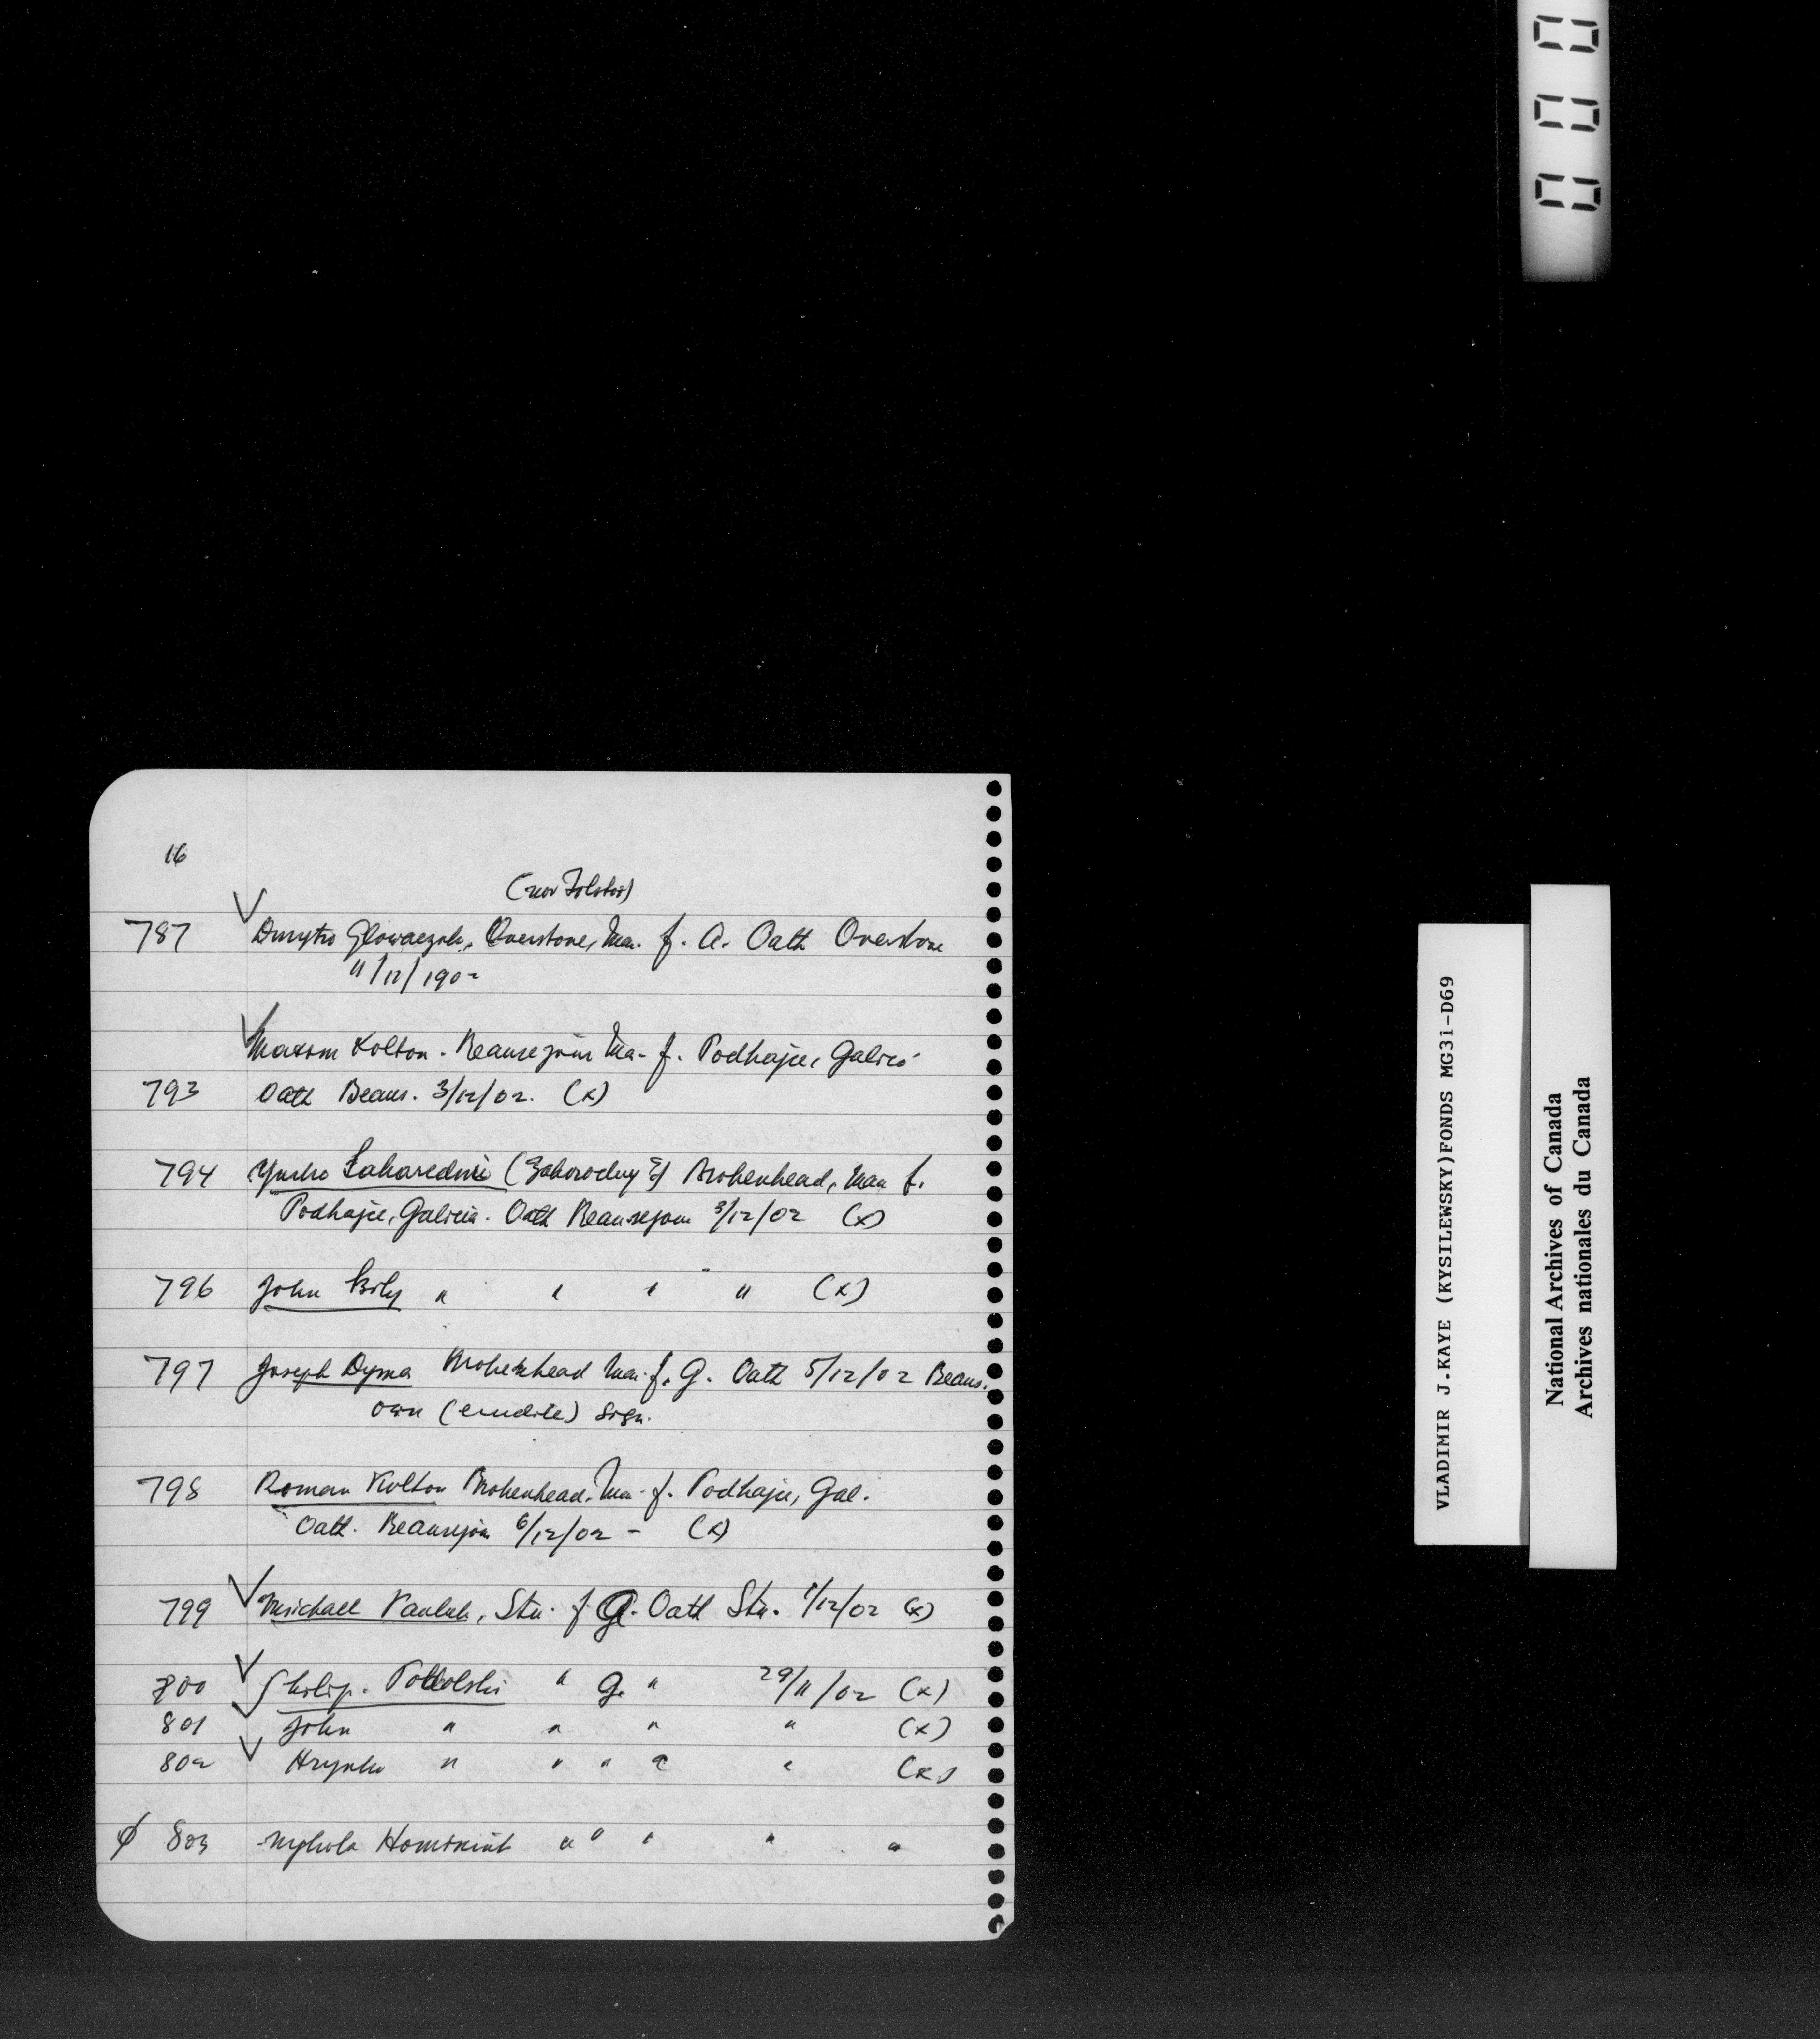 16
(now Tolstoi)
787 Dmytro Glowaczuk, Overstone, Ma. f. A. Oath Overstone
11/12/1902
Maxsm Kolton - Beausejour Ma- f. Podhajce, Galici
793 Oath Beaus. 3/12/02. (x)
794 Yurko Zaharedni (Zahorodny ?) Brokenhead, Man f.
Podhajce, Galicia. Oath Beausejour 3/12/02 (x)
796 John Bily " " " " (x)
797 Joseph Dyma Brokenhead Ma. f. G. Oath 5/12/02 Beaus.
own (erudite) sign.
798 Roman Kolton Brokenhead. Ma. f. Podhajce, Gal.
Oath. Beausejour 6/12/02 - (x)
799 Michael Pauluk, Stu. f G. Oath Stu. 1/12/02 (x)
800 Philip. Podolski " G. " 29/11/02 (x)
801 John " " " " (x)
802 Hrynko " " " " " (x)
ϕ 803 Mykola " " " " "
VLADIMIR J.KAYE (KYSILEWSKY)FONDS MG31-D69
National Archives of Canada
Archives nationales du Canada
000